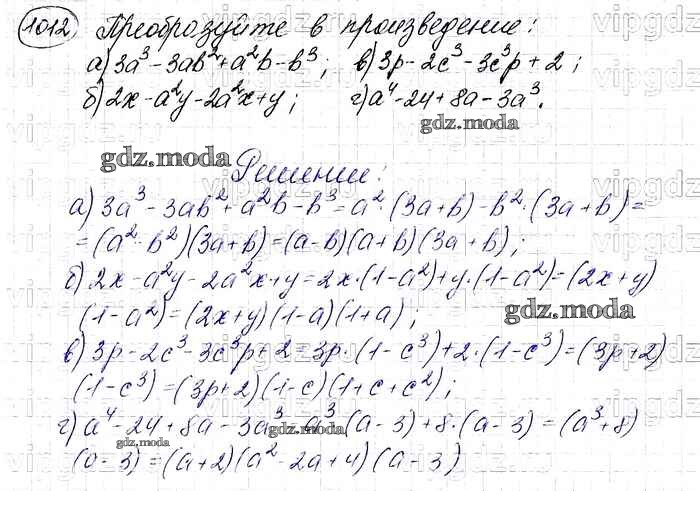 1012 Преобразуйте в произведение:
а) 3a³ - 3ab² + a²b - b³; в) 3p - 2c³ - 3c³p + 2;
б) 2x - a²y - 2a²x + y; г) a⁴ - 24 + 8a - 3a³.
gdz.moda
gdz.moda
Решение:
а) 3a³ - 3ab² + a²b - b³ = a²·(3a+b) - b²·(3a+b) =
= (a² - b²)(3a+b) = (a-b)(a+b)(3a+b);
б) 2x - a²y - 2a²x + y = 2x·(1-a²) + y·(1-a²) = (2x+y)
(1-a²) = (2x+y)(1-a)(1+a);
gdz.moda
в) 3p - 2c³ - 3c³p + 2 = 3p·(1-c³) + 2·(1-c³) = (3p+2)
(1-c³) = (3p+2)(1-c)(1+c+c²);
г) a⁴ - 24 + 8a - 3a³ = a³·(a-3) + 8·(a-3) = (a³+8)
gdz.moda
gdz.moda
(a-3) = (a+2)(a² - 2a + 4)(a-3)